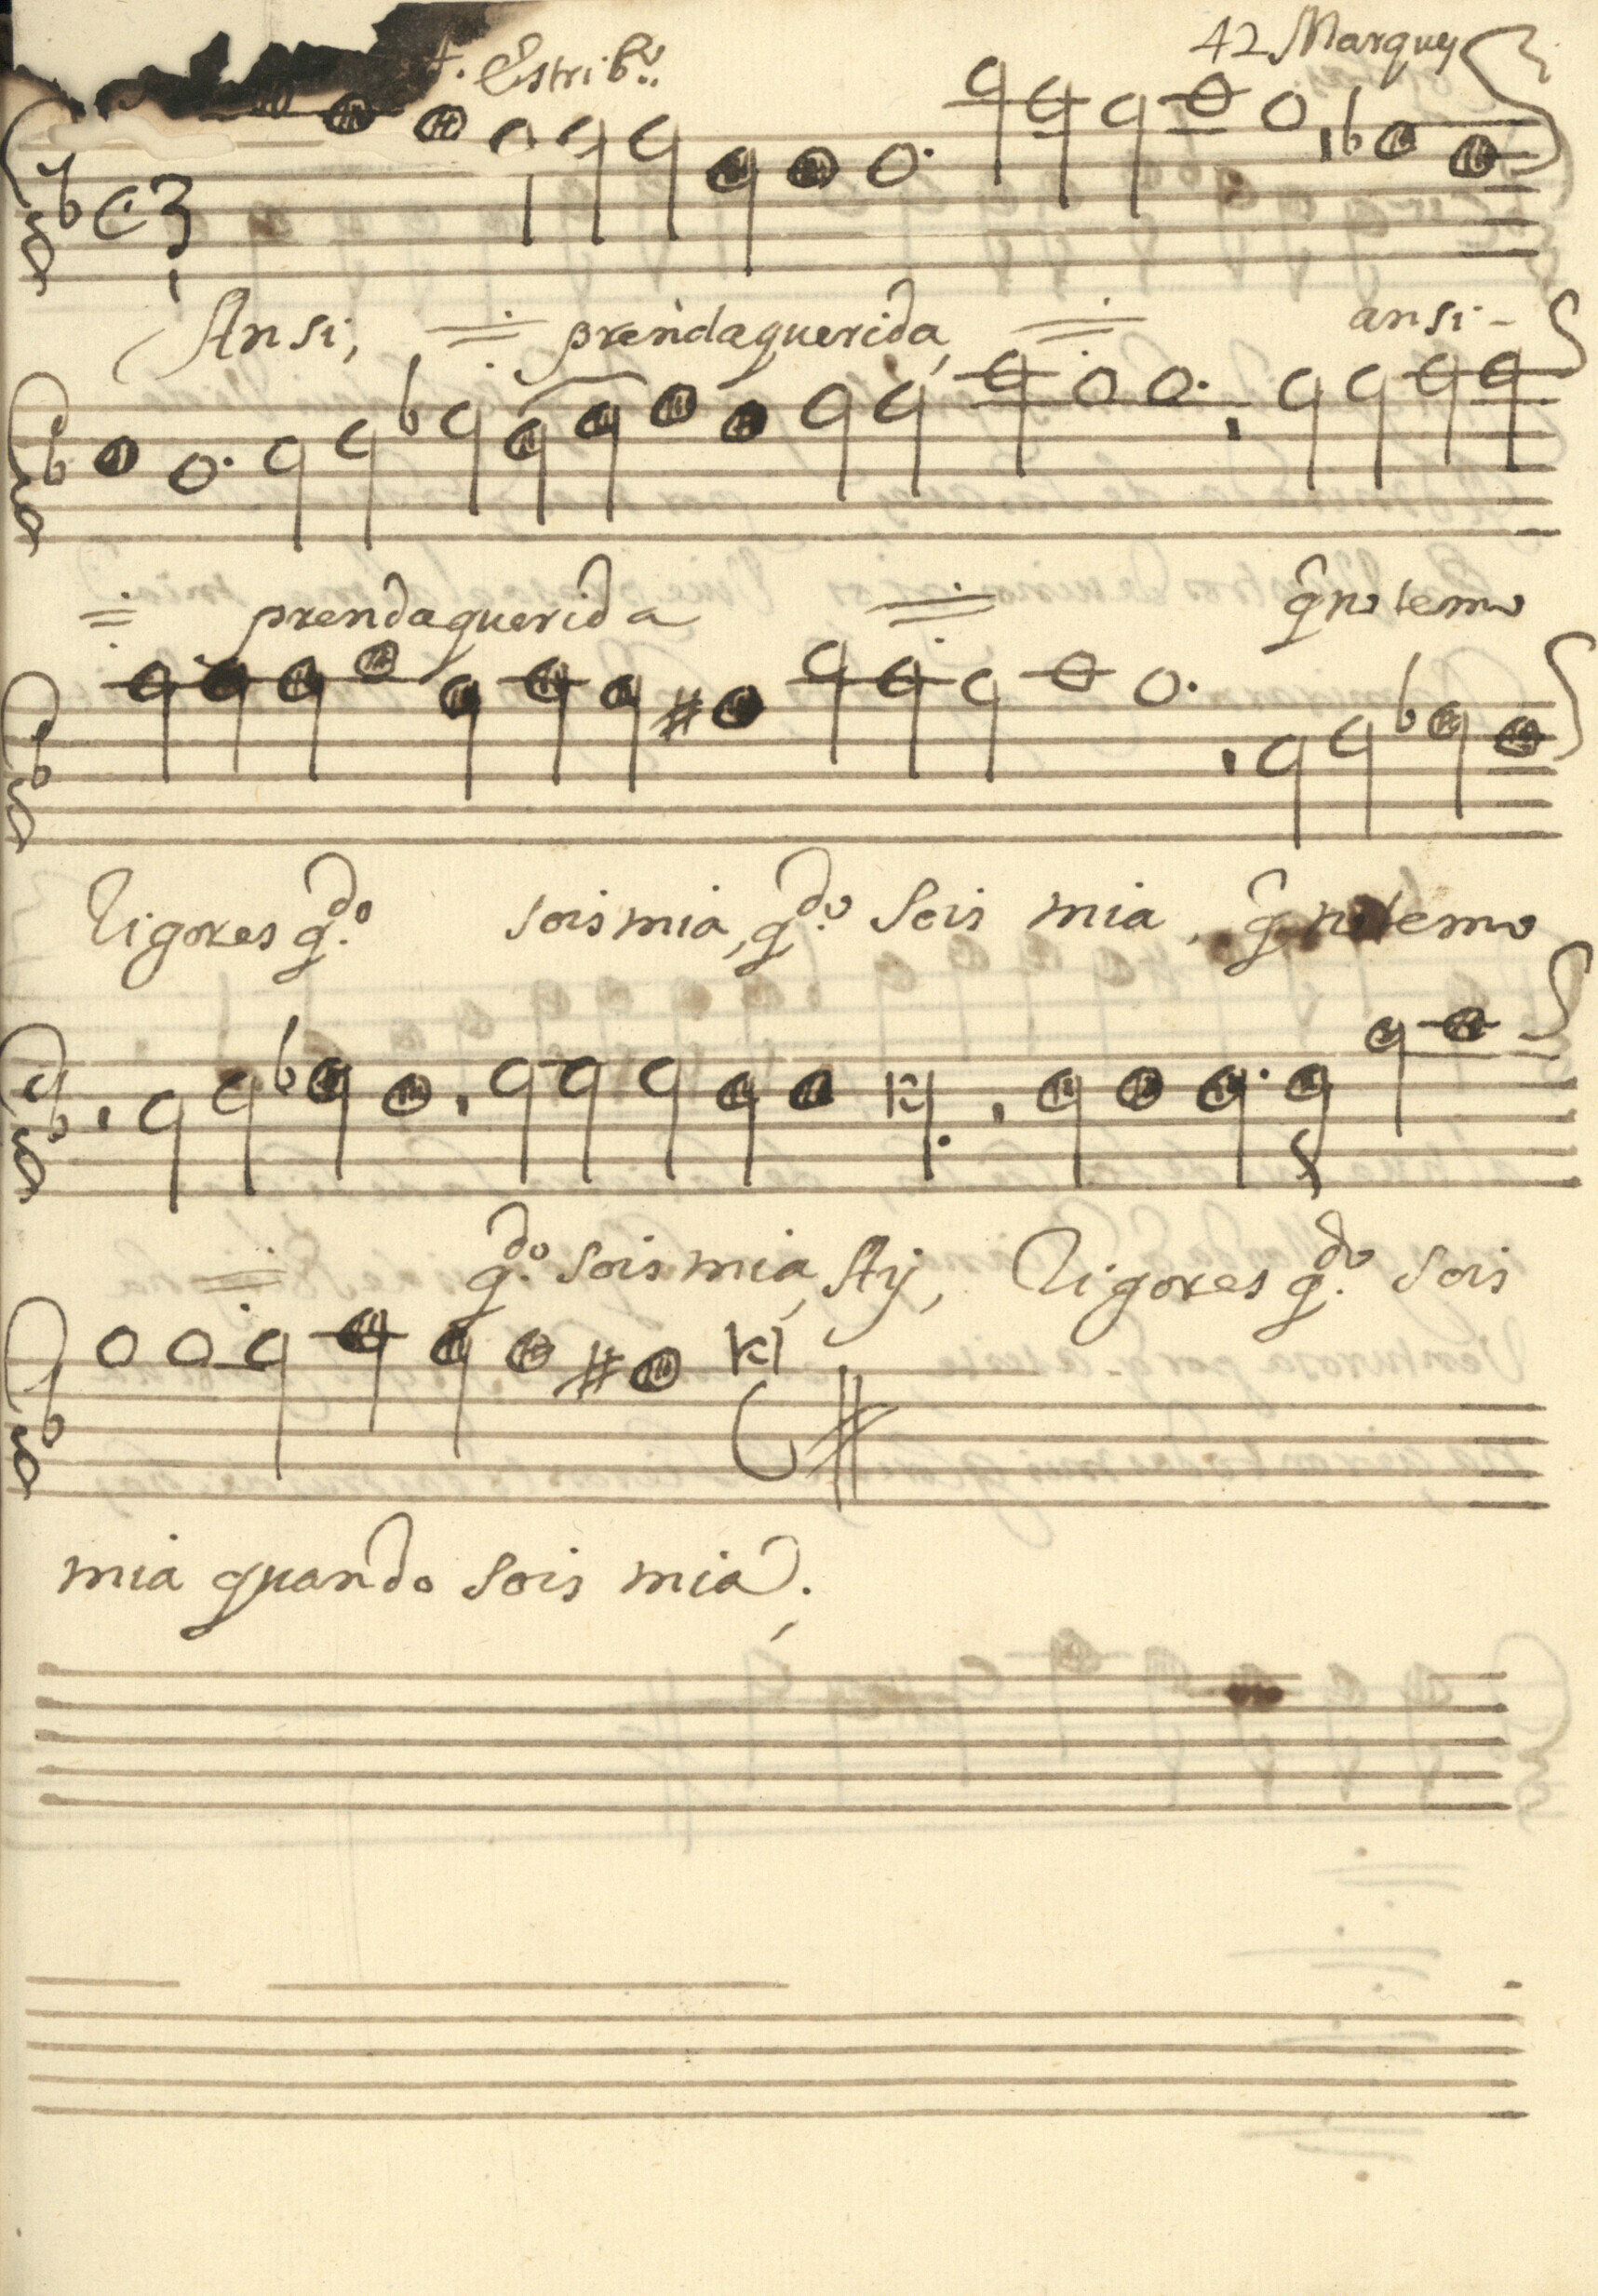 4. Estrib.º 42 Marques
Ansi, prenda querida, ansi-
prenda querida q̃ no temo
Rigores q.do sois mia, q.do sois mia, q̃ no temo
q.do sois mia, Ay, Rigores q.do sois
mia quando sois mia.